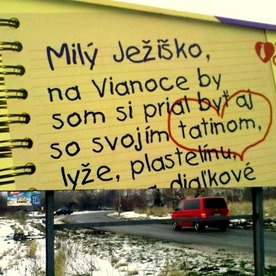 Milý Ježiško,
na Vianoce by
som si prial byť aj
so svojím tatinom,
lyže, plastelínu,
diaľkové